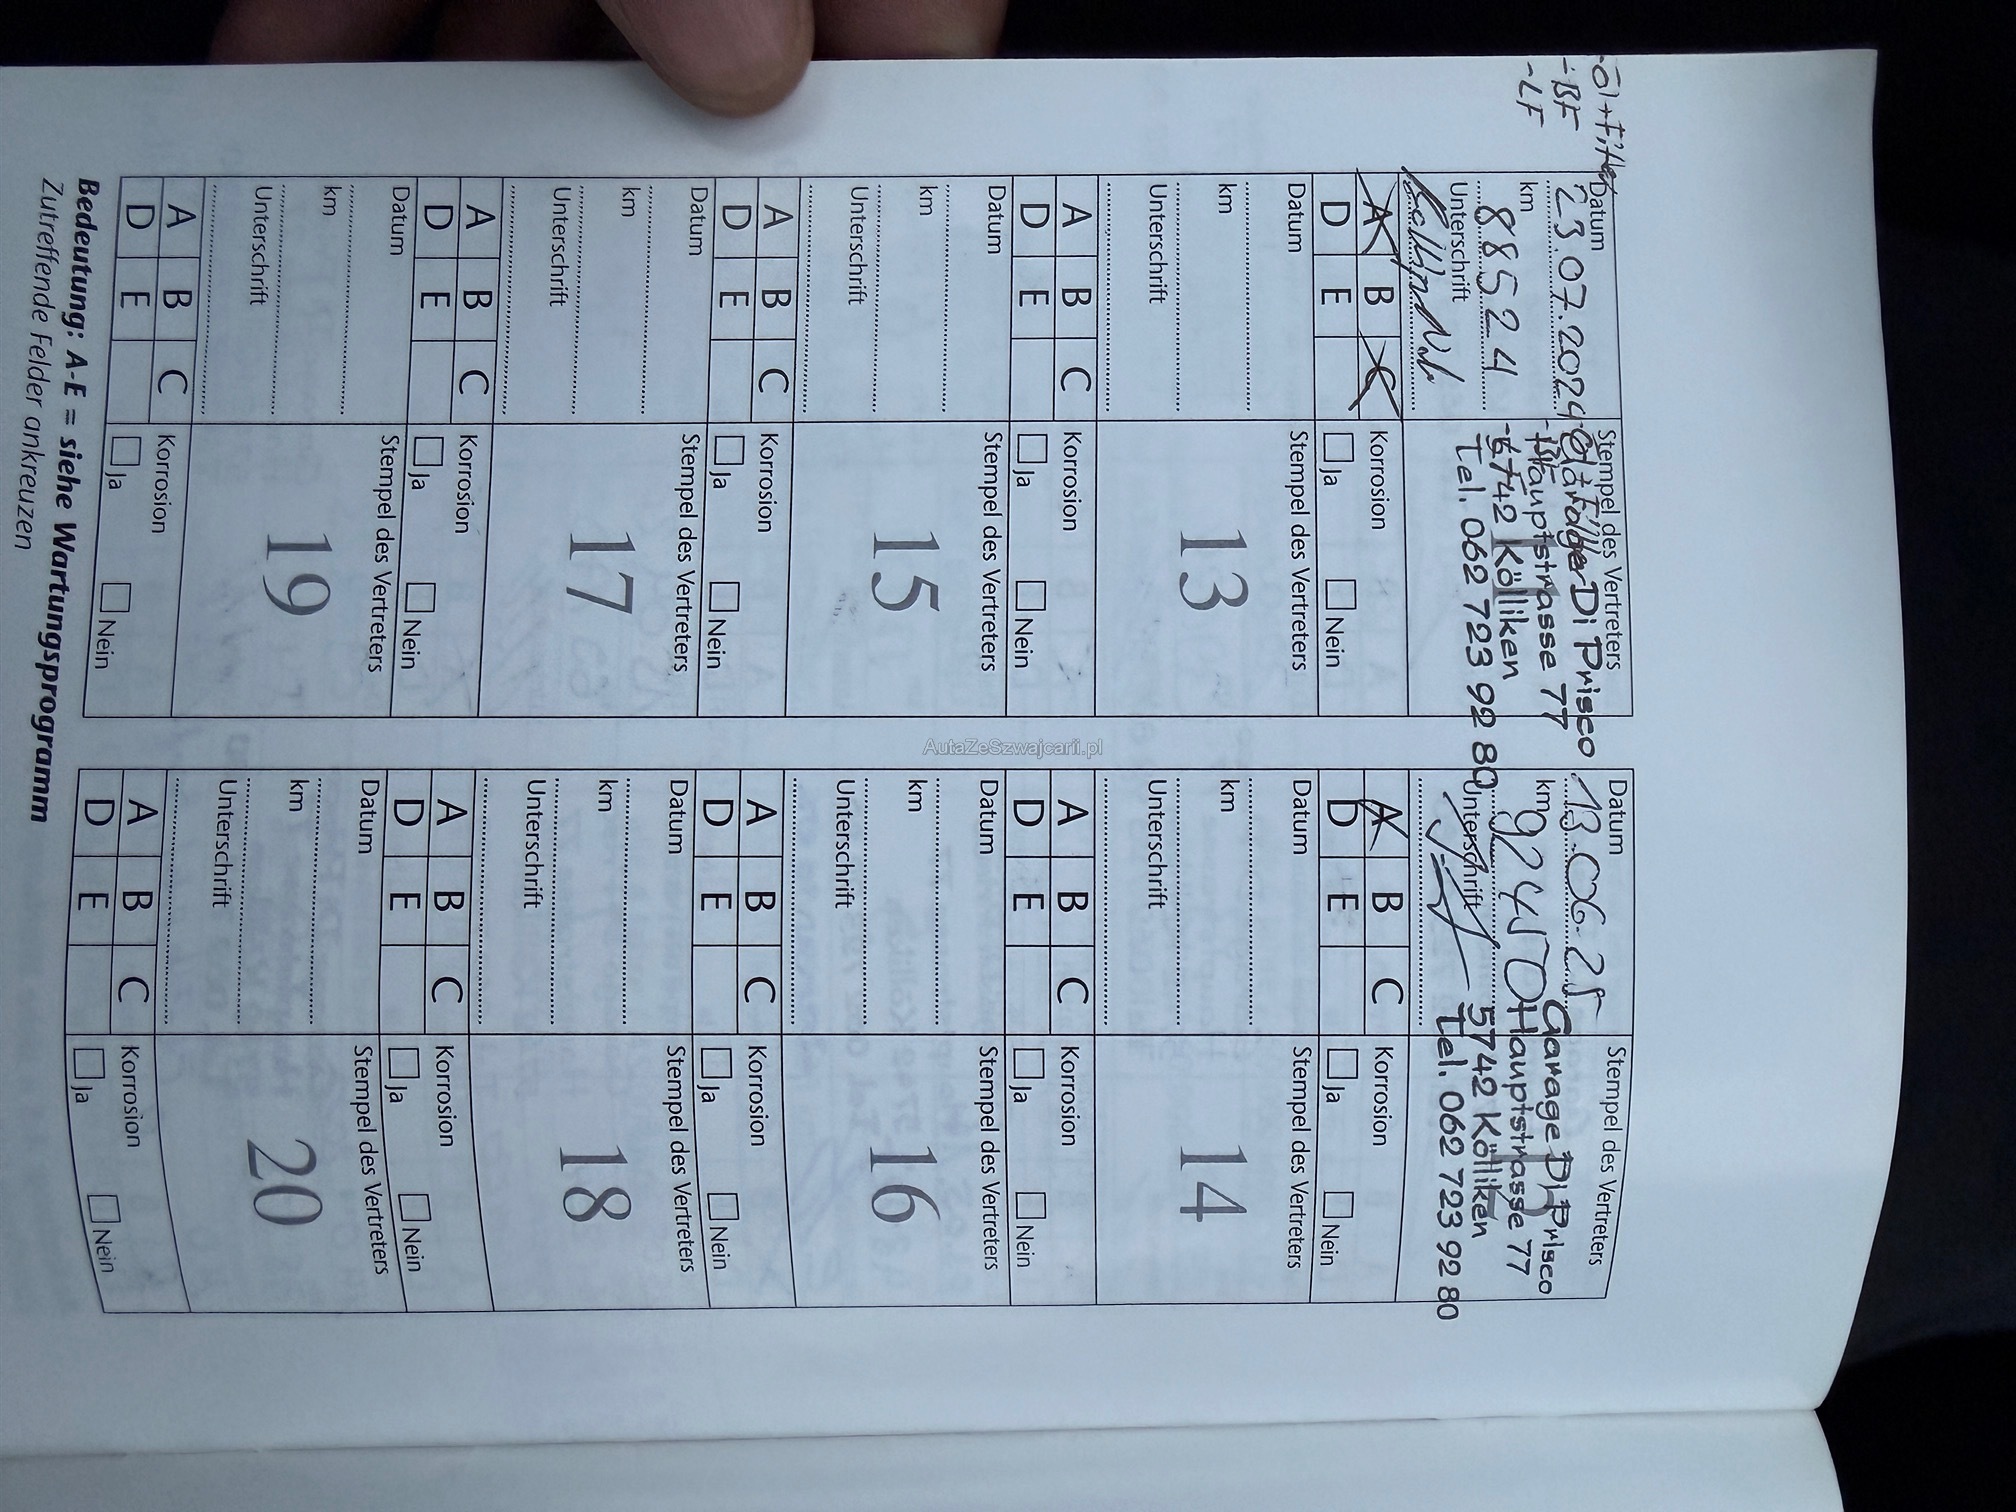 -Öl+Filter
-BF
-LF
Datum
23.07.2024
km
88524
Unterschrift
Stempel des Vertreters
Di Prisco
Hauptstrasse 77
5742 Kölliken
Tel. 062 723 92 80
A B C
D E
Korrosion
Ja Nein
Datum
13.06.25
km
Unterschrift
Stempel des Vertreters
Garage Di Prisco
Hauptstrasse 77
5742 Kölliken
Tel. 062 723 92 80
A B C
D E
Korrosion
Ja Nein
Datum
km
Unterschrift
Stempel des Vertreters
13
A B C
D E
Korrosion
Ja Nein
Datum
km
Unterschrift
Stempel des Vertreters
14
A B C
D E
Korrosion
Ja Nein
Datum
km
Unterschrift
Stempel des Vertreters
15
A B C
D E
Korrosion
Ja Nein
Datum
km
Unterschrift
Stempel des Vertreters
16
A B C
D E
Korrosion
Ja Nein
Datum
km
Unterschrift
Stempel des Vertreters
17
A B C
D E
Korrosion
Ja Nein
Datum
km
Unterschrift
Stempel des Vertreters
18
A B C
D E
Korrosion
Ja Nein
Datum
km
Unterschrift
Stempel des Vertreters
19
A B C
D E
Korrosion
Ja Nein
Datum
km
Unterschrift
Stempel des Vertreters
20
A B C
D E
Korrosion
Ja Nein
Bedeutung: A-E = siehe Wartungsprogramm
Zutreffende Felder ankreuzen
AutaZeSzwajcarii.pl